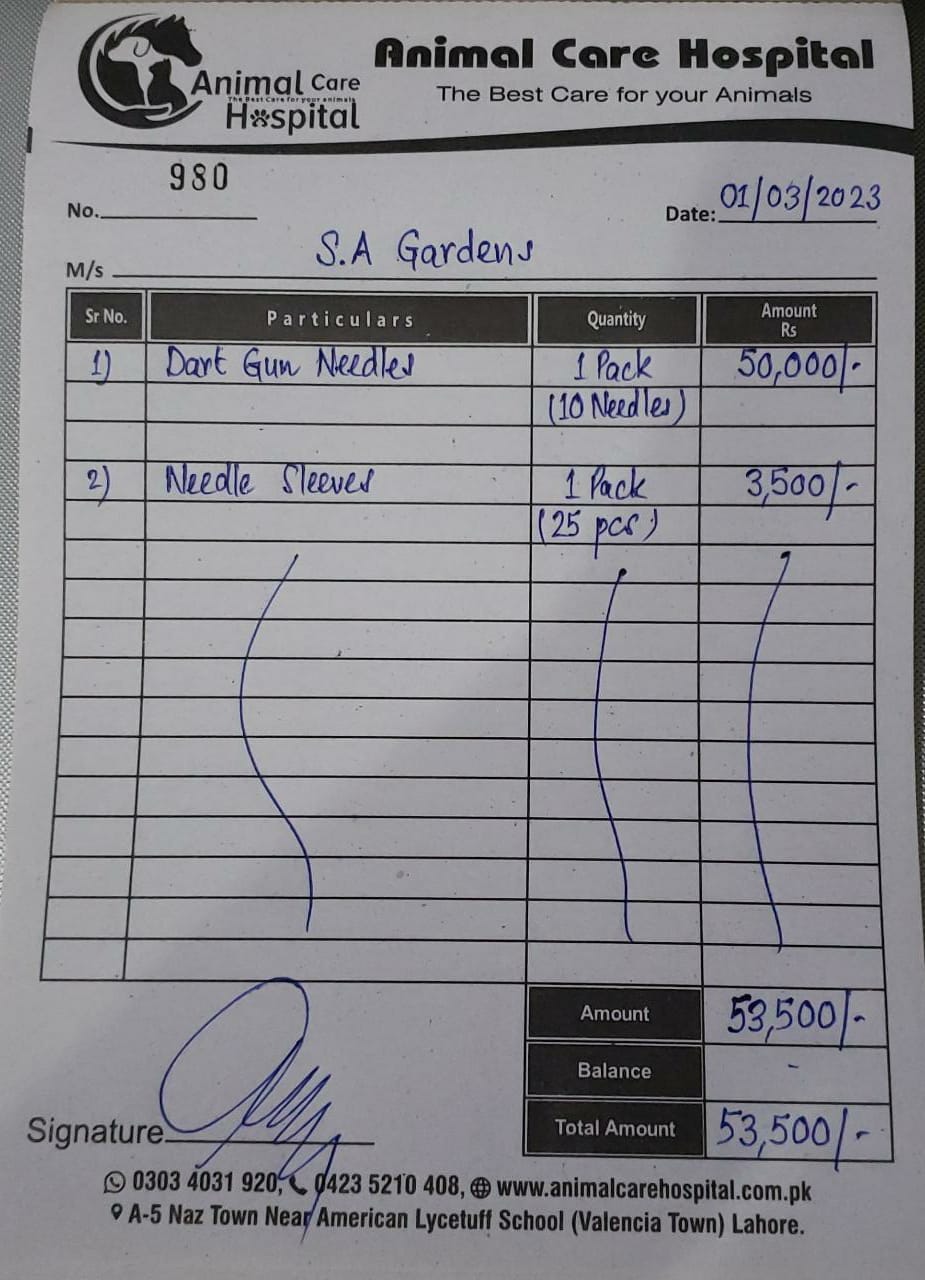 Animal Care
The Best Care for your animals
Hospital
Animal Care Hospital
The Best Care for your Animals
No. 980
Date: 01/03/2023
M/s S.A Gardens
Sr No. Particulars Quantity Amount Rs
1) Dart Gun Needles 1 Pack 50,000/-
(10 Needles)
2) Needle Sleeves 1 Pack 3,500/-
(25 pcs)
Amount 53,500/-
Balance -
Total Amount 53,500/-
Signature
0303 4031 920, 0423 5210 408, www.animalcarehospital.com.pk
A-5 Naz Town Near American Lycetuff School (Valencia Town) Lahore.